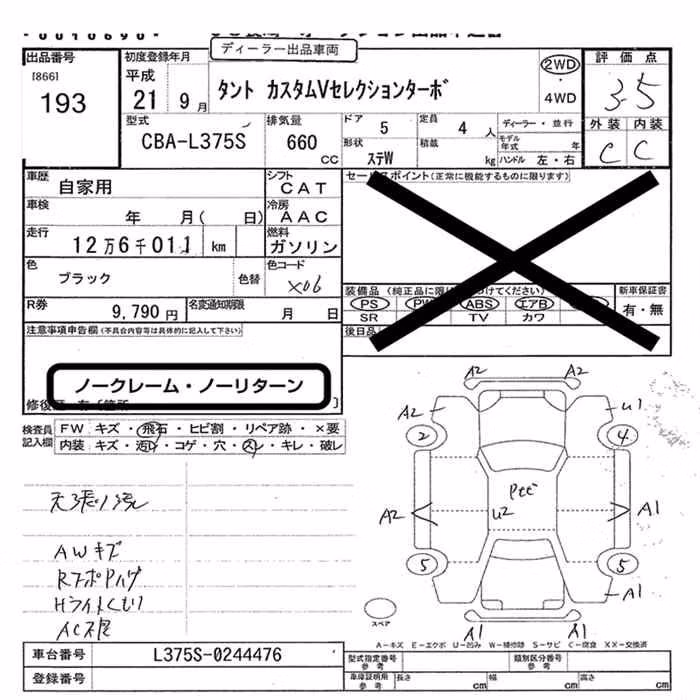 ディーラー出品車両
出品番号
[866]
193
初度登録年月
平成
21 9月
タント カスタムVセレクションターボ
2WD
・
4WD
評価点
3.5
外装 内装
C C
型式
CBA-L375S
排気量
660
CC
ドア 5
定員 4 人
ディーラー・並行
モデル年式 年
形状 ステW
積載 kg
ハンドル 左・右
車歴
自家用
シフト
CAT
車検
年 月( 日)
冷房
AAC
走行
12万6千011 km
燃料
ガソリン
色
ブラック
色替
色コード
X06
R券
9,790円
名変通知期限
月 日
セールスポイント(正常に機能するものに限ります)
新車保証書
有・無
PS
ABS
エアB
SR
TV
カワ
注意事項申告欄(不具合内容等は具体的に記入して下さい)
ノークレーム・ノーリターン
検査員記入欄
FW キズ・飛石・ヒビ割・リペア跡・×要
内装 キズ・汚レ・コゲ・穴・スレ・キレ・破レ
AWキズ
Hライトくもり
A2 A2
A2 U1
2 4
Pセビ
U2
A2 A1
5 5
A1
A1 A1
スペア
A-キズ E-エクボ U-凹み W-補修跡 S-サビ C-腐食 XX-交換済
車台番号
L375S-0244476
登録番号
型式指定番号
参考
類別区分番号
参考
車庫証明用
参考
長さ cm
幅 cm
高さ cm